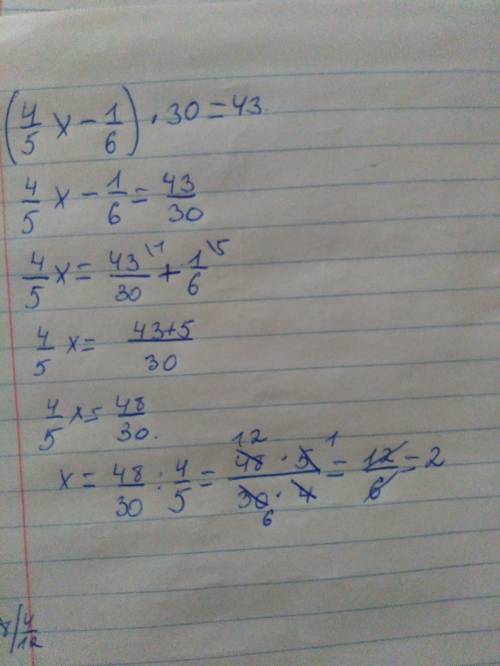 (4/5 x - 1/6) · 30 = 43
4/5 x - 1/6 = 43/30
4/5 x = 43/30 \1 + 1/6 \5
4/5 x = 43+5/30
4/5 x = 48/30.
x = 48/30 : 4/5 = 48 12 · 5 1/30 6 · 4 = 12/6 = 2
8/4/12